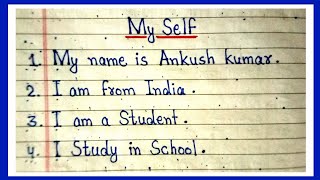 My Self
1. My name is Ankush kumar.
2. I am from India.
3. I am a Student.
4. I Study in School.